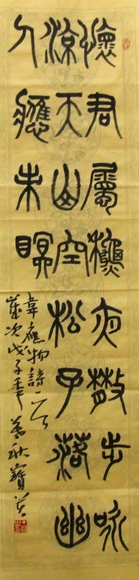 懷君屬秋夜散步詠
涼天山空松子落幽
人應未眠
韋應物詩一首
歲次戊子年